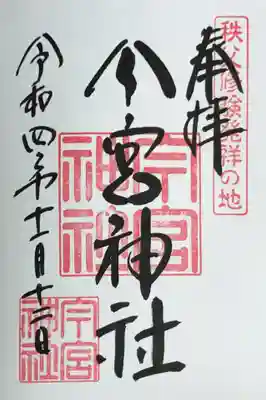 秩父修験発祥の地
奉拝
今宮神社
今宮
神社
令和四年十一月十三日
今宮
神社